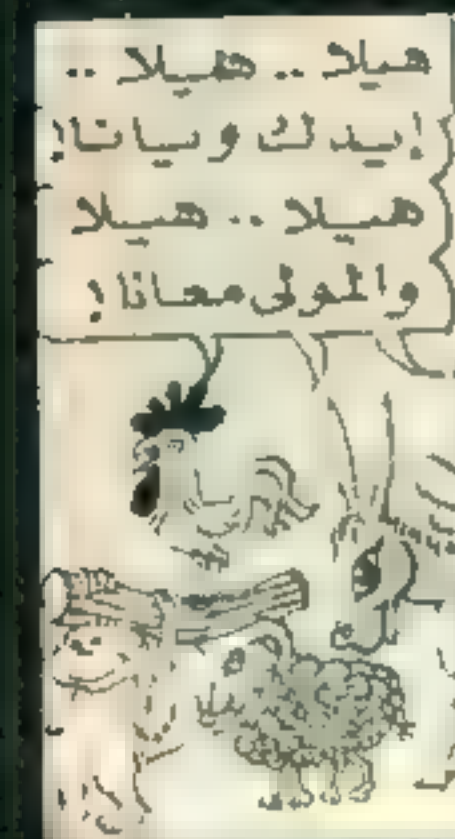 هيلا .. هيلا ..
إيدك ويانا!
هيلا .. هيلا
والمولى معانا!